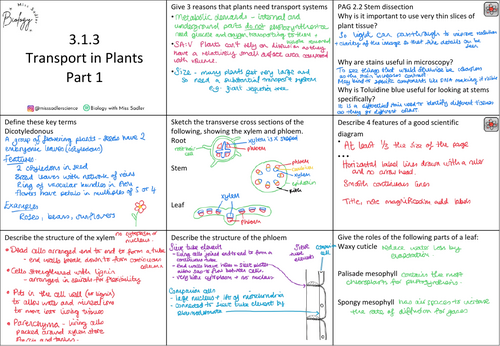 Miss Sadler
Biology
3.1.3
Transport in Plants
Part 1
@missadlerscience
Biology with Miss Sadler
Give 3 reasons that plants need transport systems
• Metabolic demands - internal and
underground parts do not photosynthesise
need glucose and oxygen transporting to them +
waste removed
• SA:V Plants can't rely on diffusion as they
have a relatively small surface area compared
with volume.
• Size - many plants get very large and
so need a substantial transport system
e.g. giant sequoia tree
PAG 2.2 Stem dissection
Why is it important to use very thin slices of
plant tissue?
So light can pass through to increase resolution
+ clarity of the image so that fine details can be
seen
Why are stains useful in microscopy?
To see things that would otherwise be
as the stain increases contrast
May bind to specific components like DNA making it visible
Why is Toluidine blue useful for looking at stems
specifically?
It is a differential stain used to identify different tissues
as they go different
Define these key terms
Dicotyledonous
A group of flowering plants - seeds have 2
embryonic leaves (cotyledons)
Features:
2 cotyledons in seed
Broad leaves with network of veins
Ring of vascular bundles in stem
flowers have petals in multiples of 5 or 4
Examples
Roses, beans, sunflowers
Sketch the transverse cross sections of the
following, showing the xylem and phloem.
Root
xylem is X shaped
phloem
Stem
phloem
cambium
xylem
epidermis
Pith
Leaf
xylem
phloem
Describe 4 features of a good scientific
diagram
• At least 1/2 the size of the page
Horizontal label lines drawn with a ruler
and no arrow head.
Smooth continuous lines
Title, note magnification add labels
Describe the structure of the xylem
no cytoplasm or
nucleus.
• Dead cells arranged end to end to form a tube
- end walls break down to form continuous
column
• Cells strengthened with lignin
- arranged in spirals for flexibility
• Pits in the cell wall (no lignin)
to allow water and mineral ions
to move into living tissues
• Parenchyma - living cells
packed around xylem store
starch and tannins.
Describe the structure of the phloem
Sieve tube element
- living cells joined end to end to form a
continuous tube
- end walls have holes = sieve plates
allow sap to flow between cells
- very little cytoplasm + no nucleus
Companion cells
- large nucleus + lots of mitochondria
- connected to sieve tube element by
plasmodesmata
Sieve
tube
element
Give the roles of the following parts of a leaf:
Waxy cuticle reduce water loss by
evaporation.
Palisade mesophyll contains the most
chloroplasts for photosynthesis.
Spongy mesophyll has air spaces to increase
the rate of diffusion for gases